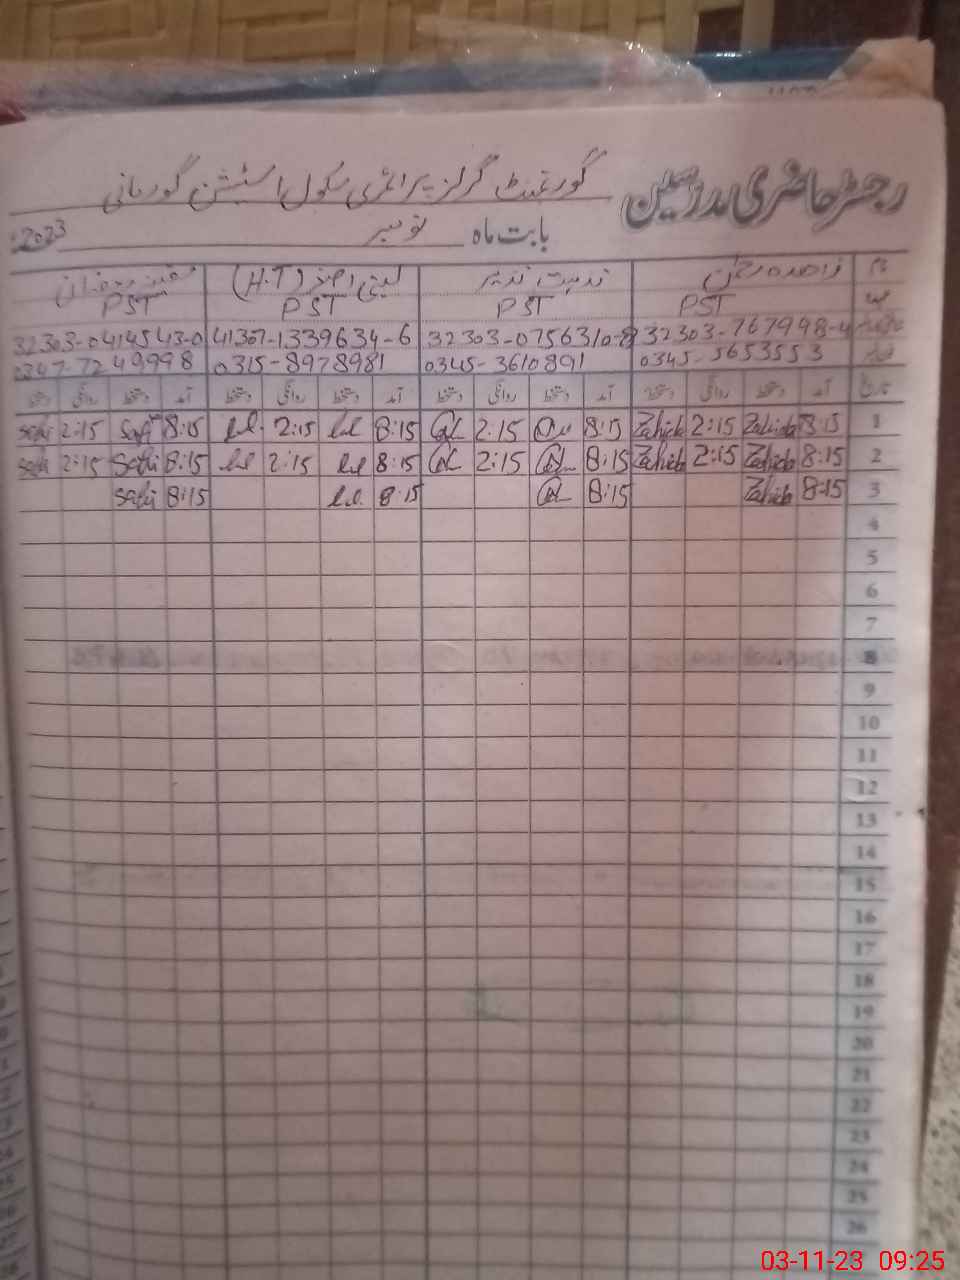 رجسٹر حاضری مدرسین گورنمنٹ گرلز پرائمری سکول اسٹیشن گورمانی
بابت ماہ نومبر 2023
نام زاہدہ لبنیٰ (H.T)
PST PST PST PST
32303-767998-4 32303-0756310-8 41307-1339634-6 32303-0414543-0
0345-5653553 0345-3610891 0315-8978981 0347-7249998
تاریخ آمد دستخط روانگی دستخط آمد دستخط روانگی دستخط آمد دستخط روانگی دستخط آمد دستخط روانگی دستخط
1 8:15 Zahida 2:15 Zahida 8:15 2:15 8:15 2:15 8:15 Safi 2:15 Safi
2 8:15 Zahida 2:15 Zahida 8:15 2:15 8:15 2:15 8:15 Safi 2:15 Safi
3 8:15 Zahida 8:15 8:15 8:15 Safi
4
5
6
7
8
9
10
11
12
13
14
15
16
17
18
19
20
21
22
23
24
25
26
03-11-23 09:25